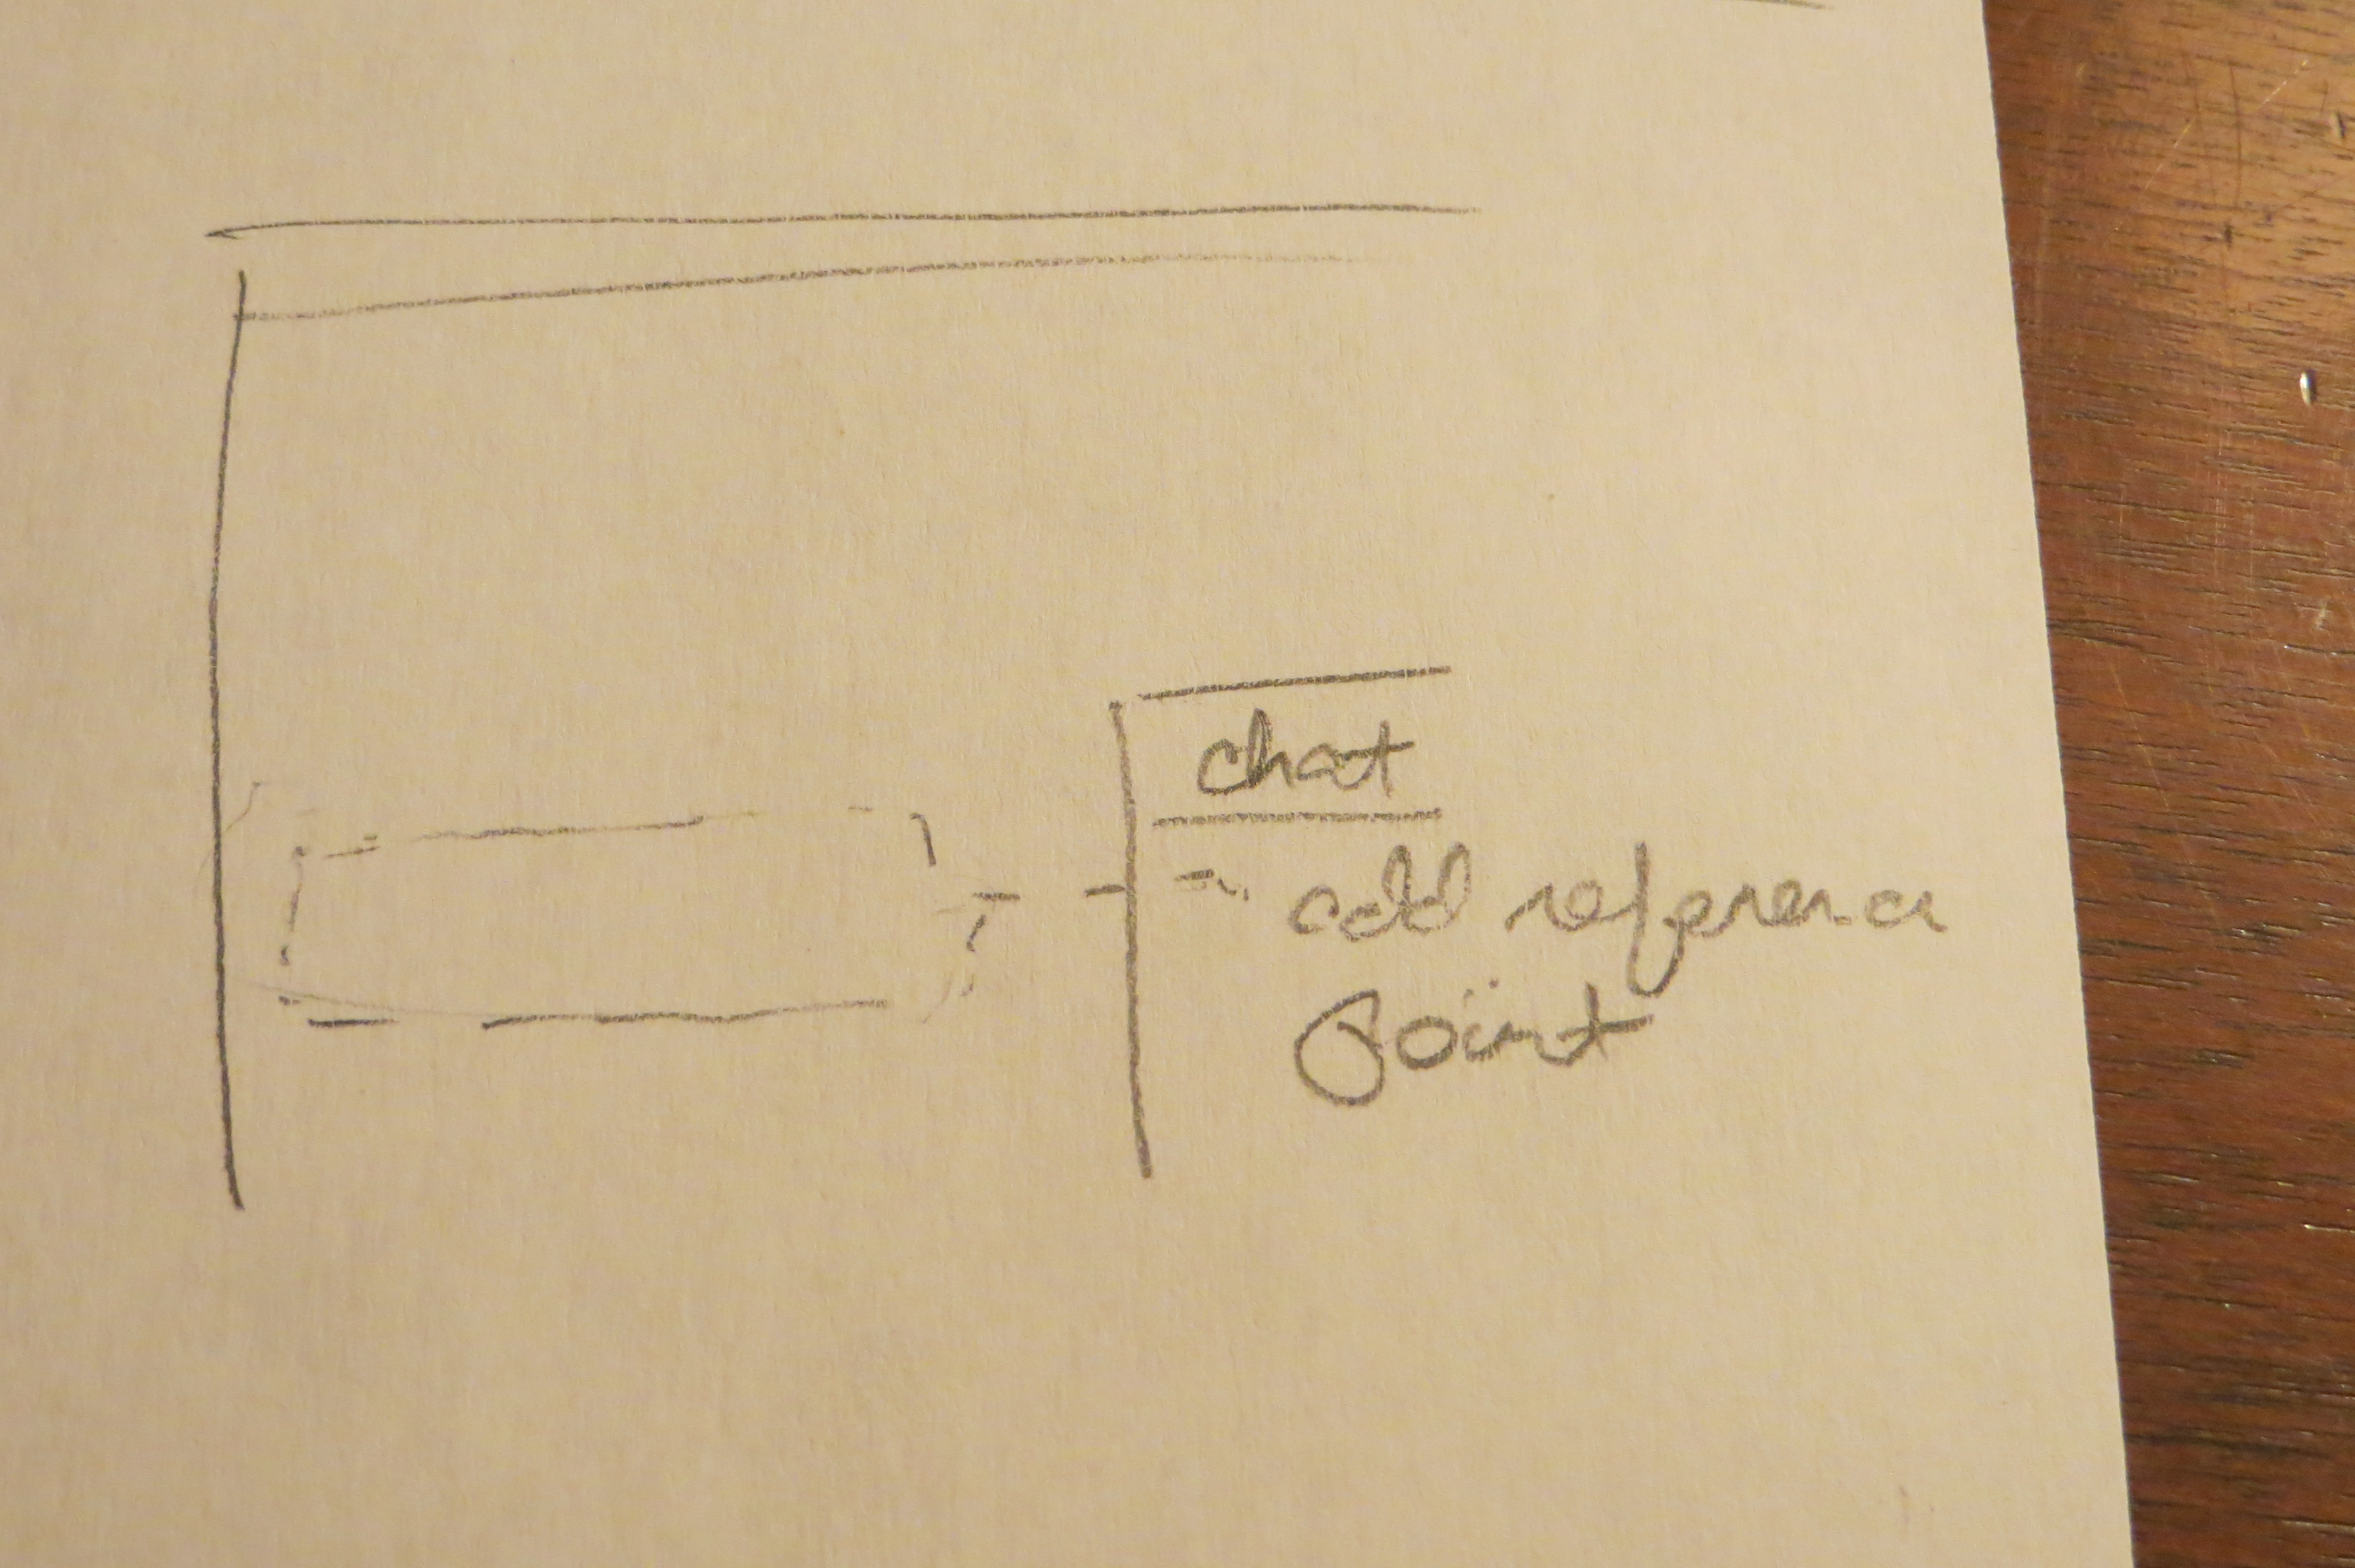 chat
add reference
point